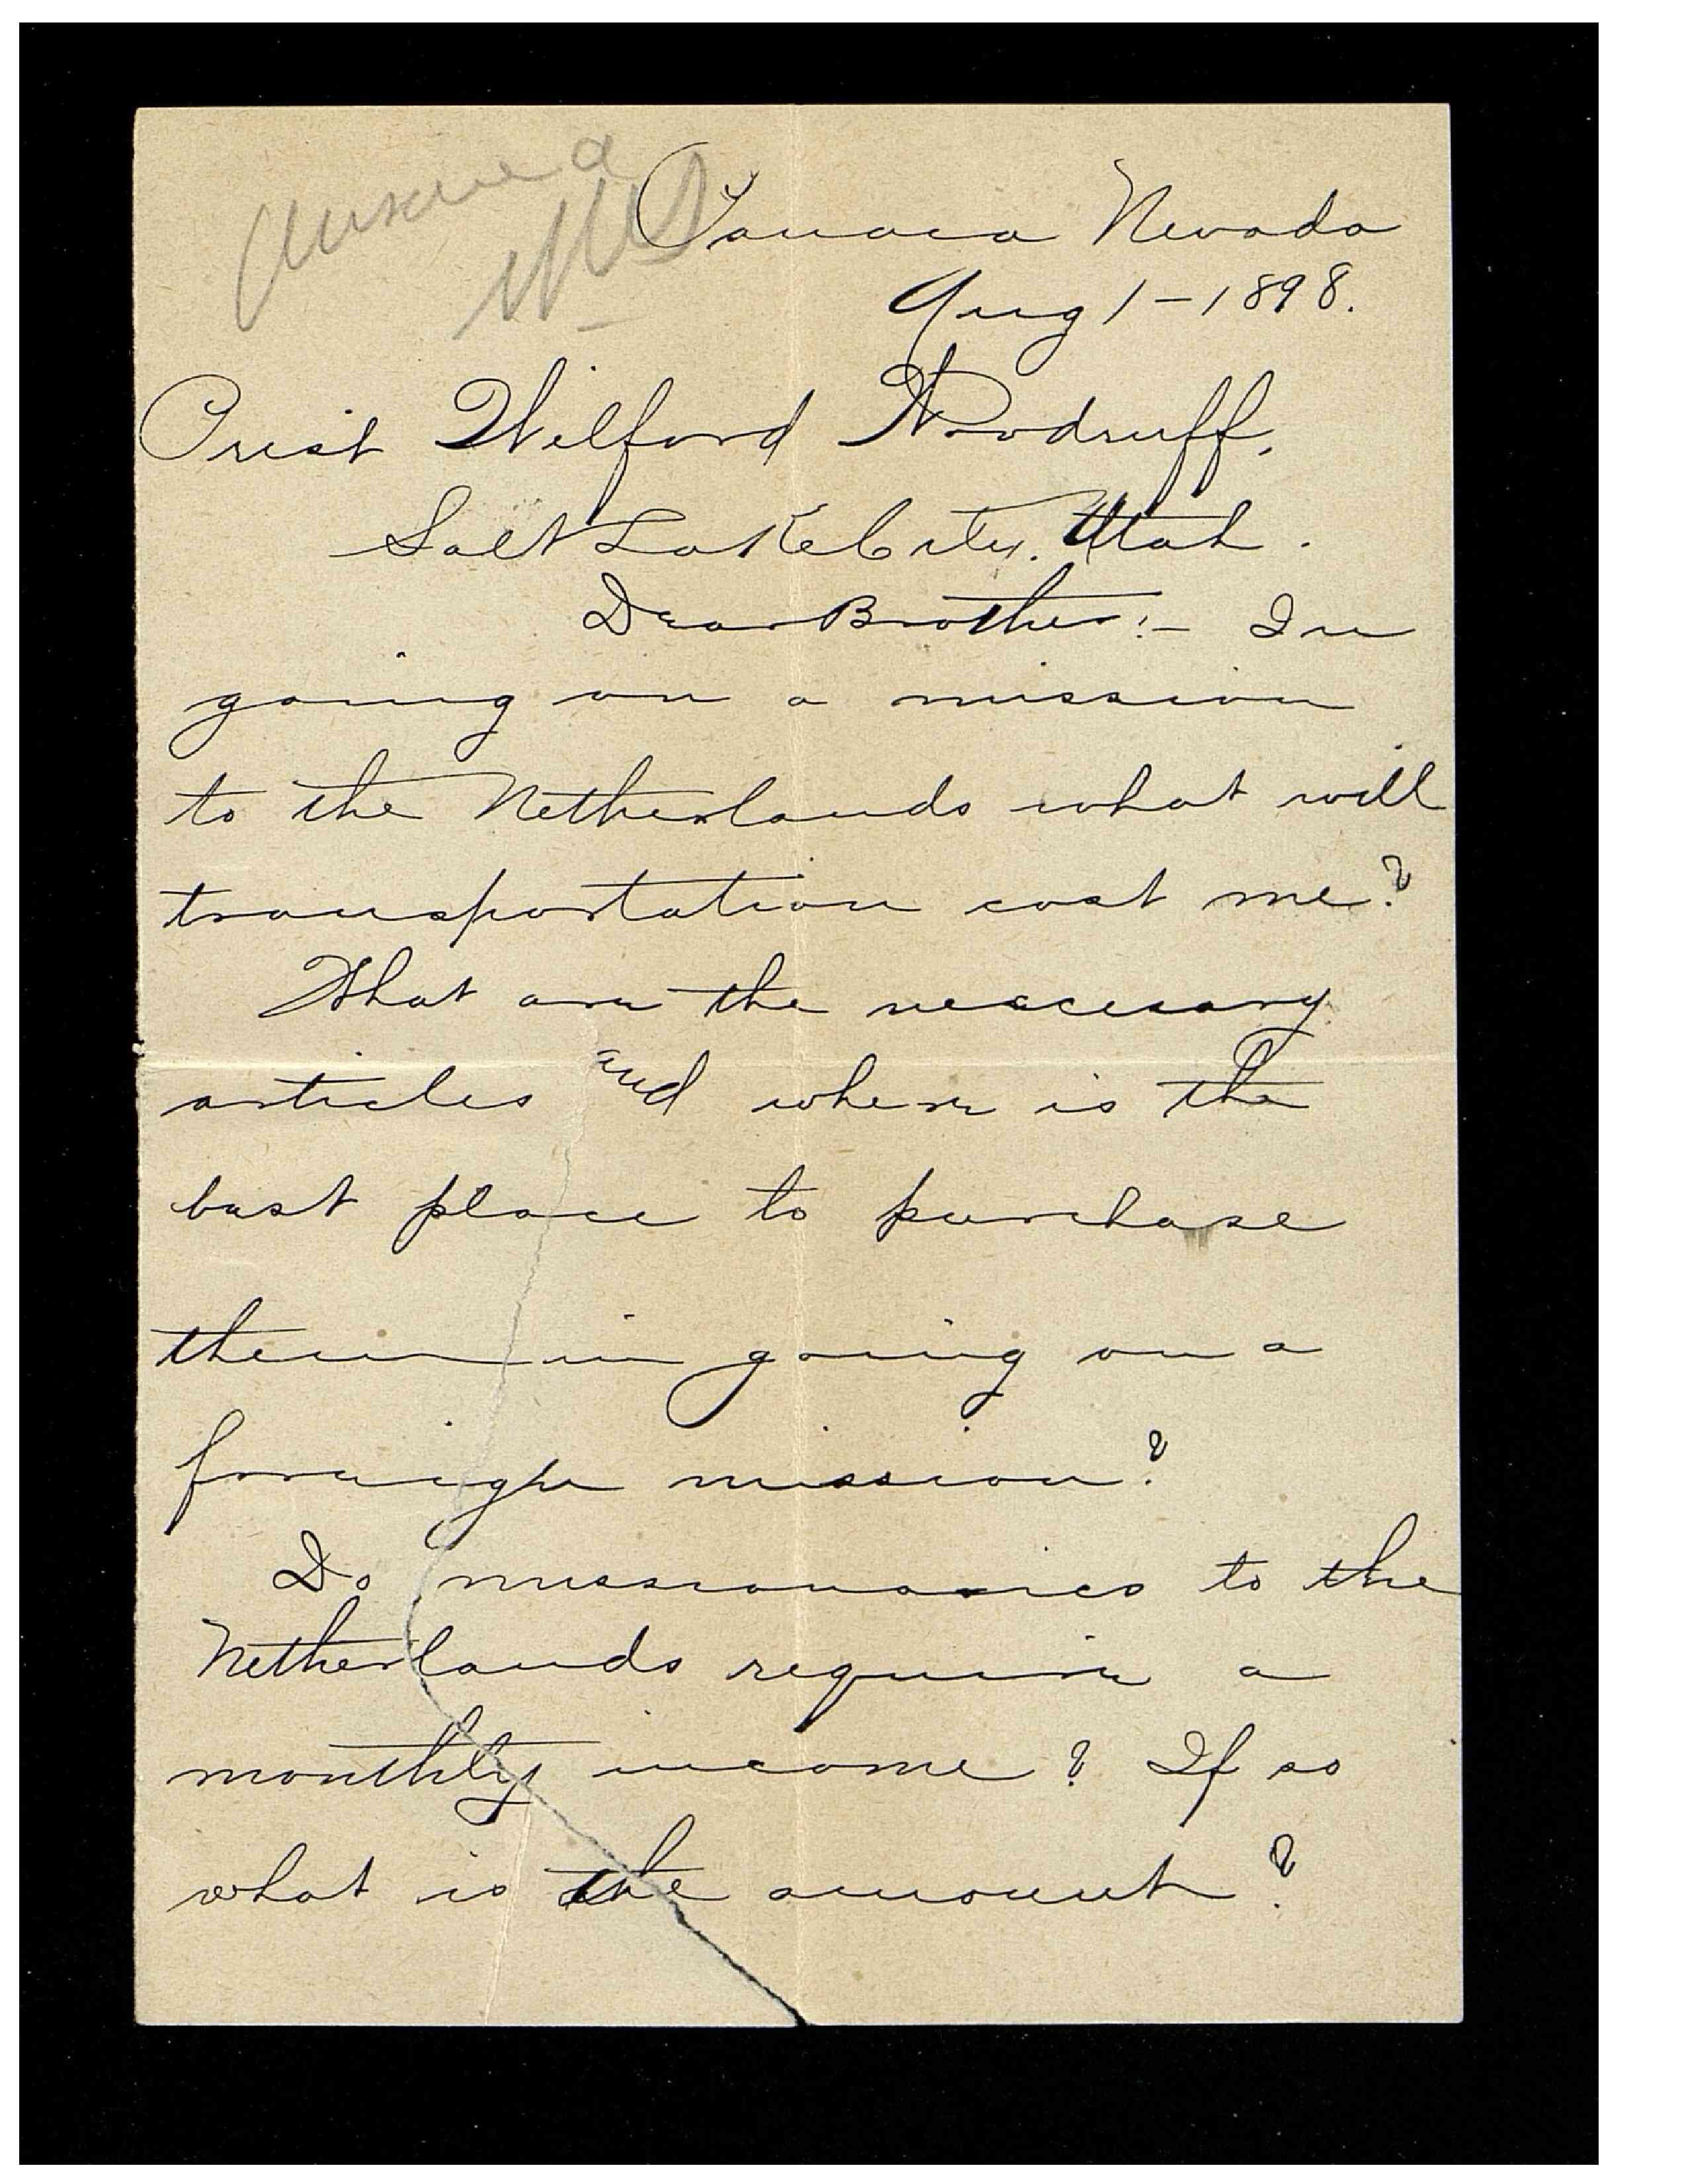 Answered
Panaca Nevada
Aug 1-1898.
Prest Wilford Woodruff,
Salt Lake City. Utah.
Dear Brother:- In
going on a mission
to the Netherlands what will
transportation cost me?
What are the neccesary
articles and where is the
best place to purchase
them in going on a
foreign mission?
Do missionaries to the
Netherlands require a
monthly income? If so
what is the amount?